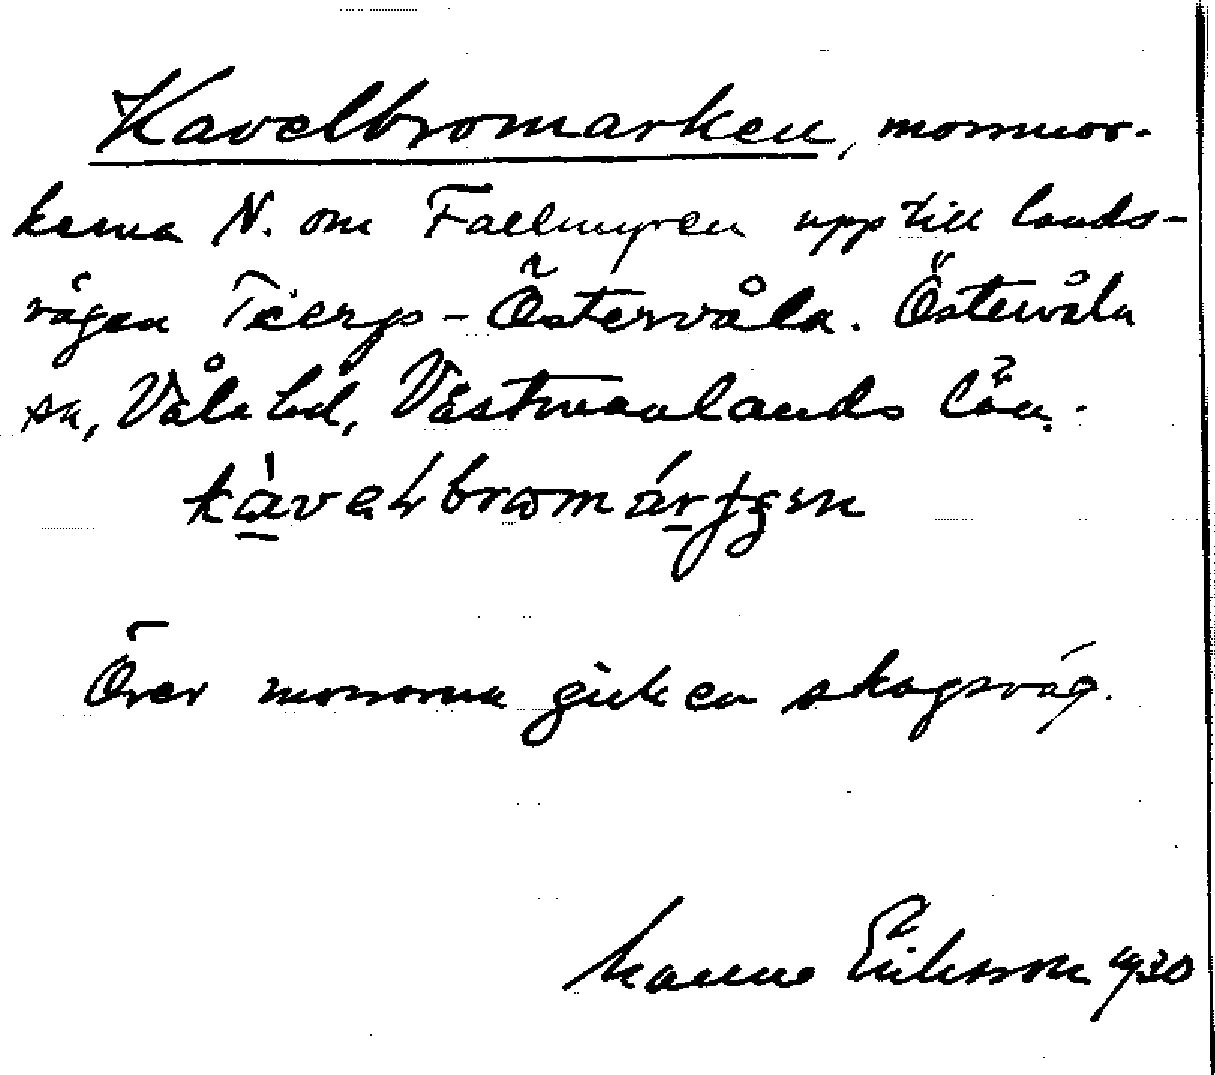 Kavelbromarken, mossmar-
kerna N. om Fallmyren upp till lands-
vägen Tierp - Östervåla. Östervåla
sn, Våla hd, Västmanlands län.
Över mossarna gick en skogsväg.
Manne Eriksson 1930